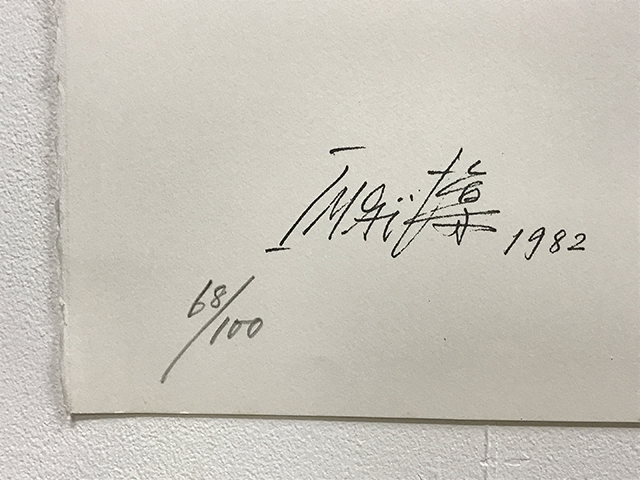 IMAï 1982
68/100